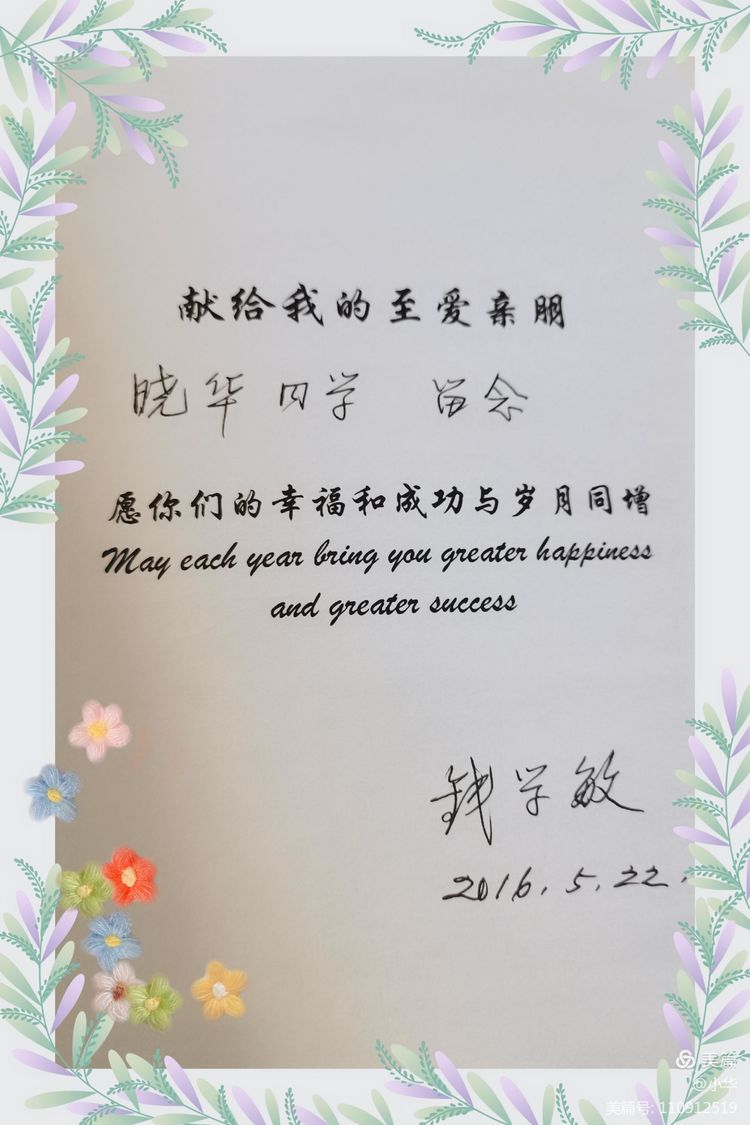 献给我的至爱亲朋
晓华同学 留念
愿你们的幸福和成功与岁月同增
May each year bring you greater happiness
and greater success
钱学敏
2016.5.22.
美篇
@小华
美篇号: 110912519